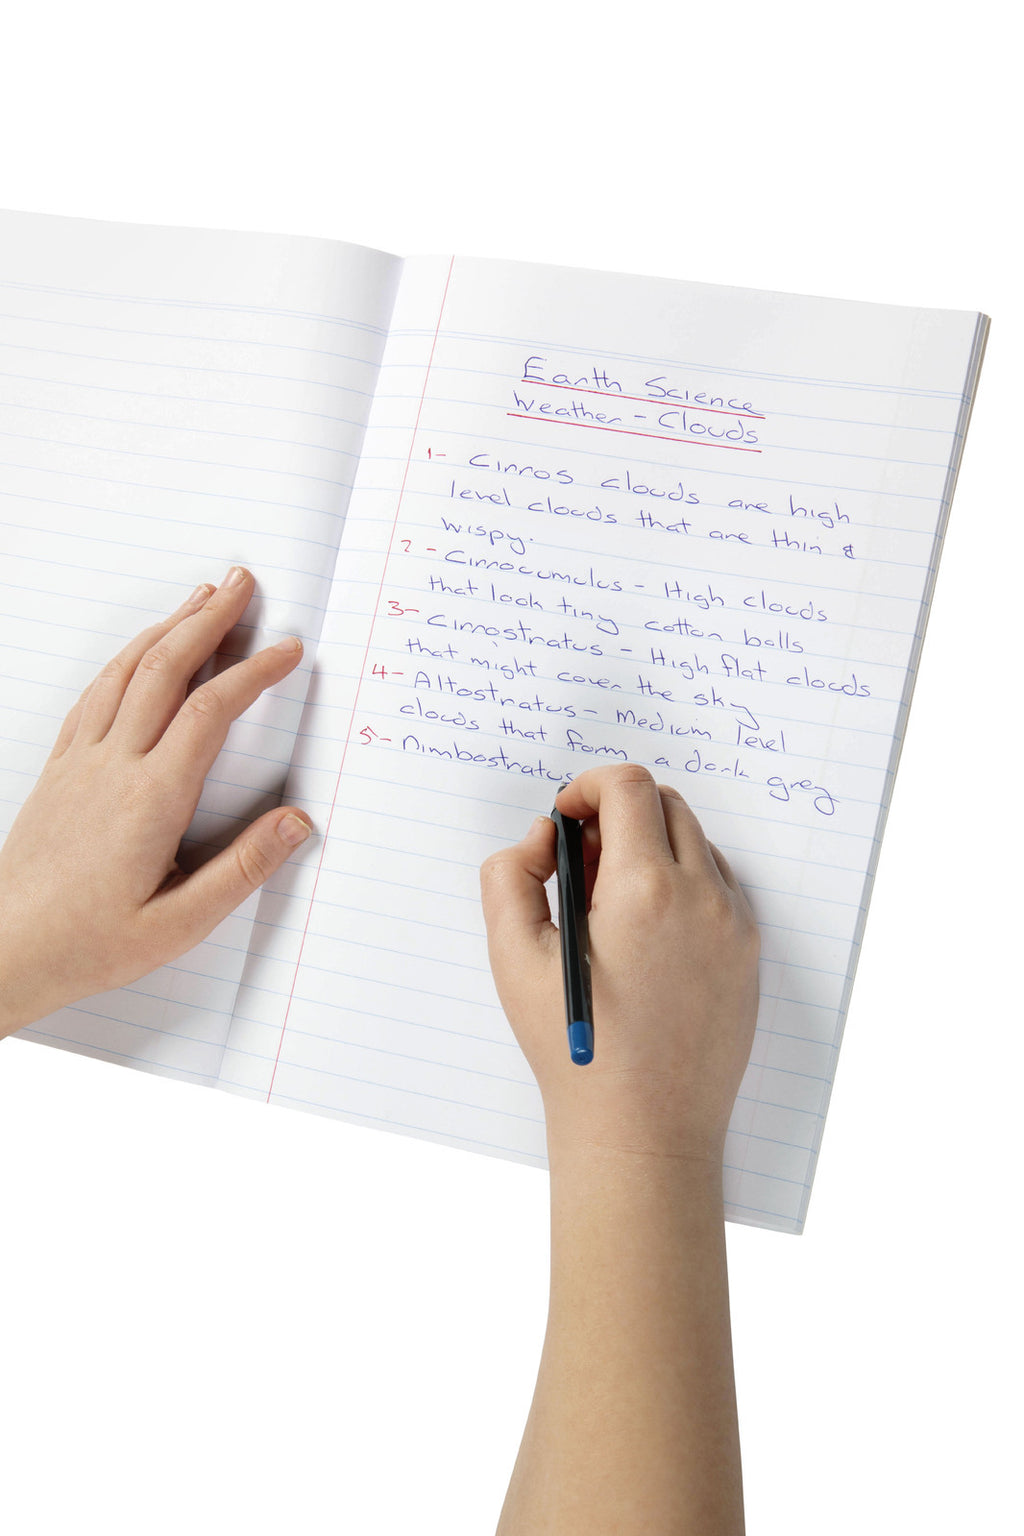 Earth Science
Weather - Clouds
1- Cirros clouds are high
level clouds that are thin &
wispy.
2 - Cirrocumulus - High clouds
that look tiny cotton balls
3- Cirrostratus - High flat clouds
that might cover the sky
4- Altostratus - medium level
clouds that form a dark grey
5- Nimbostratus